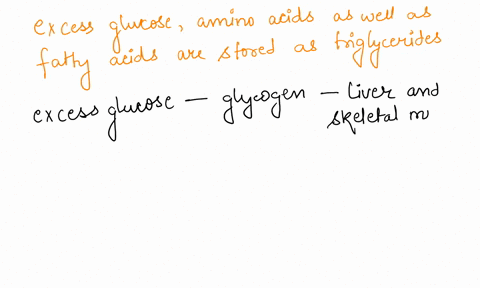 excess glucose, amino acids as well as
fatty acids are stored as triglycerides
excess glucose — glycogen — liver and
skeletal m